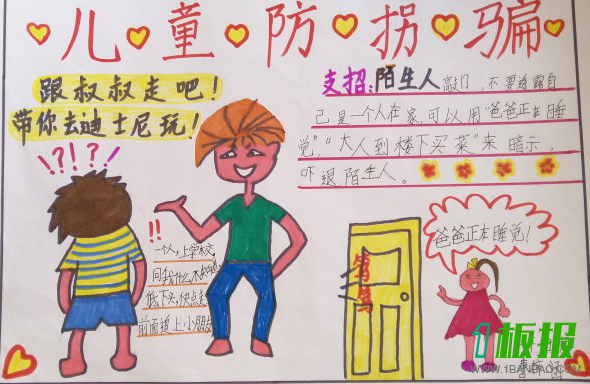 儿童防拐骗
跟叔叔走吧！
带你去迪士尼玩！
\?!?/
支招：陌生人敲门，不要透露自
己是一个人在家，可以用“爸爸正在睡
觉”，“大人到楼下买菜”来暗示，
吓退陌生人。
!!
一个人，上学校，
问我什么，不
低下头，快点走，
前面追上小朋友
笃笃
爸爸正在睡觉！
1板报
WWW.1BANBAO.COM